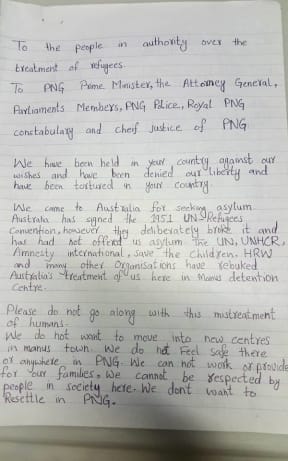 To the people in authority over the
treatment of refugees.
To PNG Prime Minister, the Attorney General,
Parliaments Members, PNG Police, Royal PNG
constabulary and cheif justice of PNG
We have been held in your country against our
wishes and have been denied our liberty and
have been tortured in your country.
We came to Australia for seeking asylum.
Australia has signed the 1951 UN Refugees
Convention, however they deliberately broke it and
has had not offerd us asylum. The UN, UNHCR,
Amnesty international, save the children, HRW
and many other Organisations have rebuked
Australia's treatment of us here in Manus detention
Centre.
Please do not go along with this mistreatment
of humans.
We do not want to move into new centres
in manus town. We do not Feel safe there
or anywhere in PNG. We can not work or provide
for our families. We cannot be respected by
people in society here. We don't want to
Resettle in PNG.